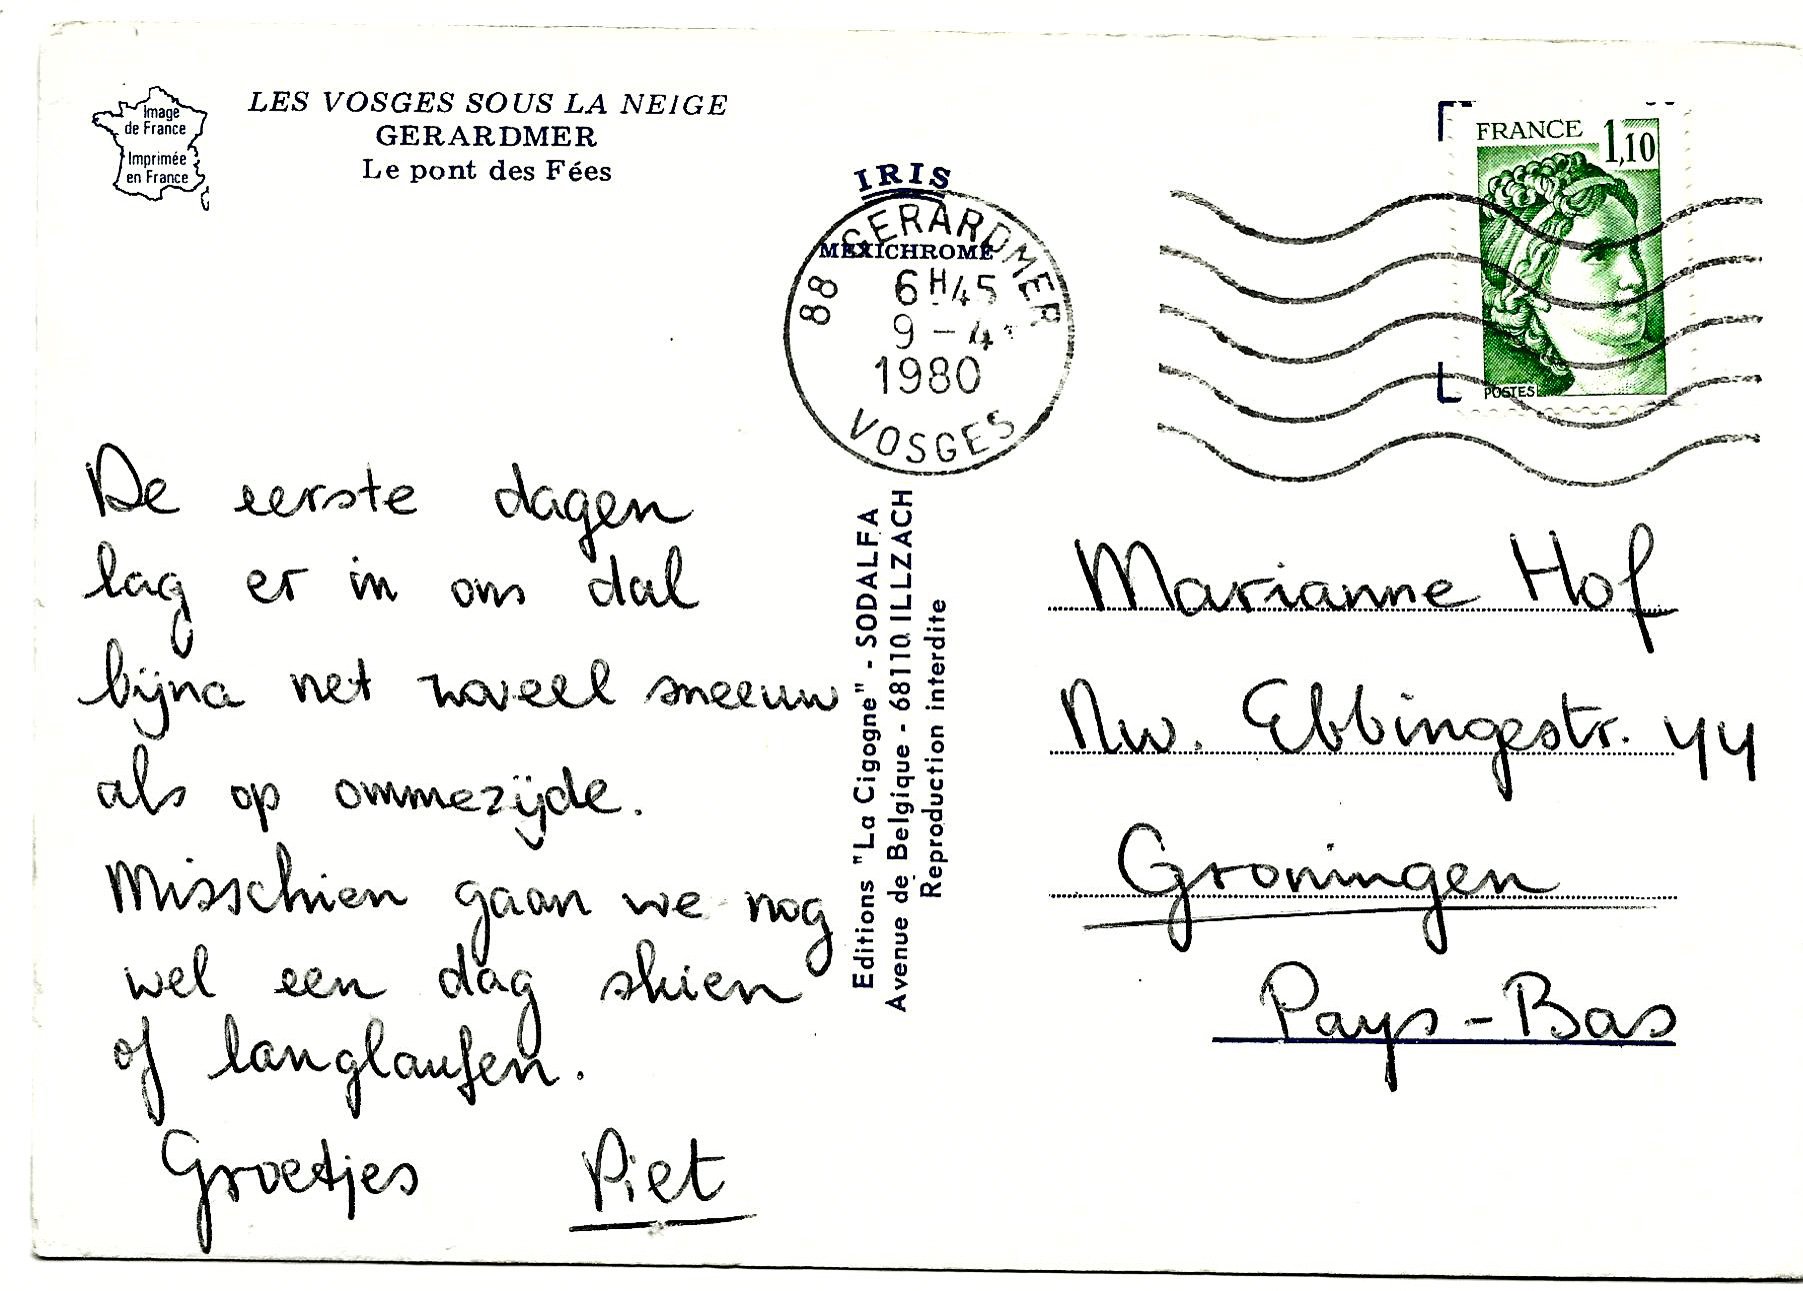 Image
de France
Imprimée
en France
LES VOSGES SOUS LA NEIGE
GERARDMER
Le pont des Fées
IRIS
MEXICHROME
88 GERARDMER
6H45
9-4
1980
VOSGES
FRANCE 1,10
POSTES
De eerste dagen
lag er in ons dal
bijna net zoveel sneeuw
als op ommezijde.
Misschien gaan we nog
wel een dag skien
of langlaufen.
Groetjes Piet
Editions "La Cigogne" - SODALFA
Avenue de Belgique - 68110 ILLZACH
Reproduction interdite
Marianne Hof
Nw. Ebbingestr. 44
Groningen
Pays-Bas